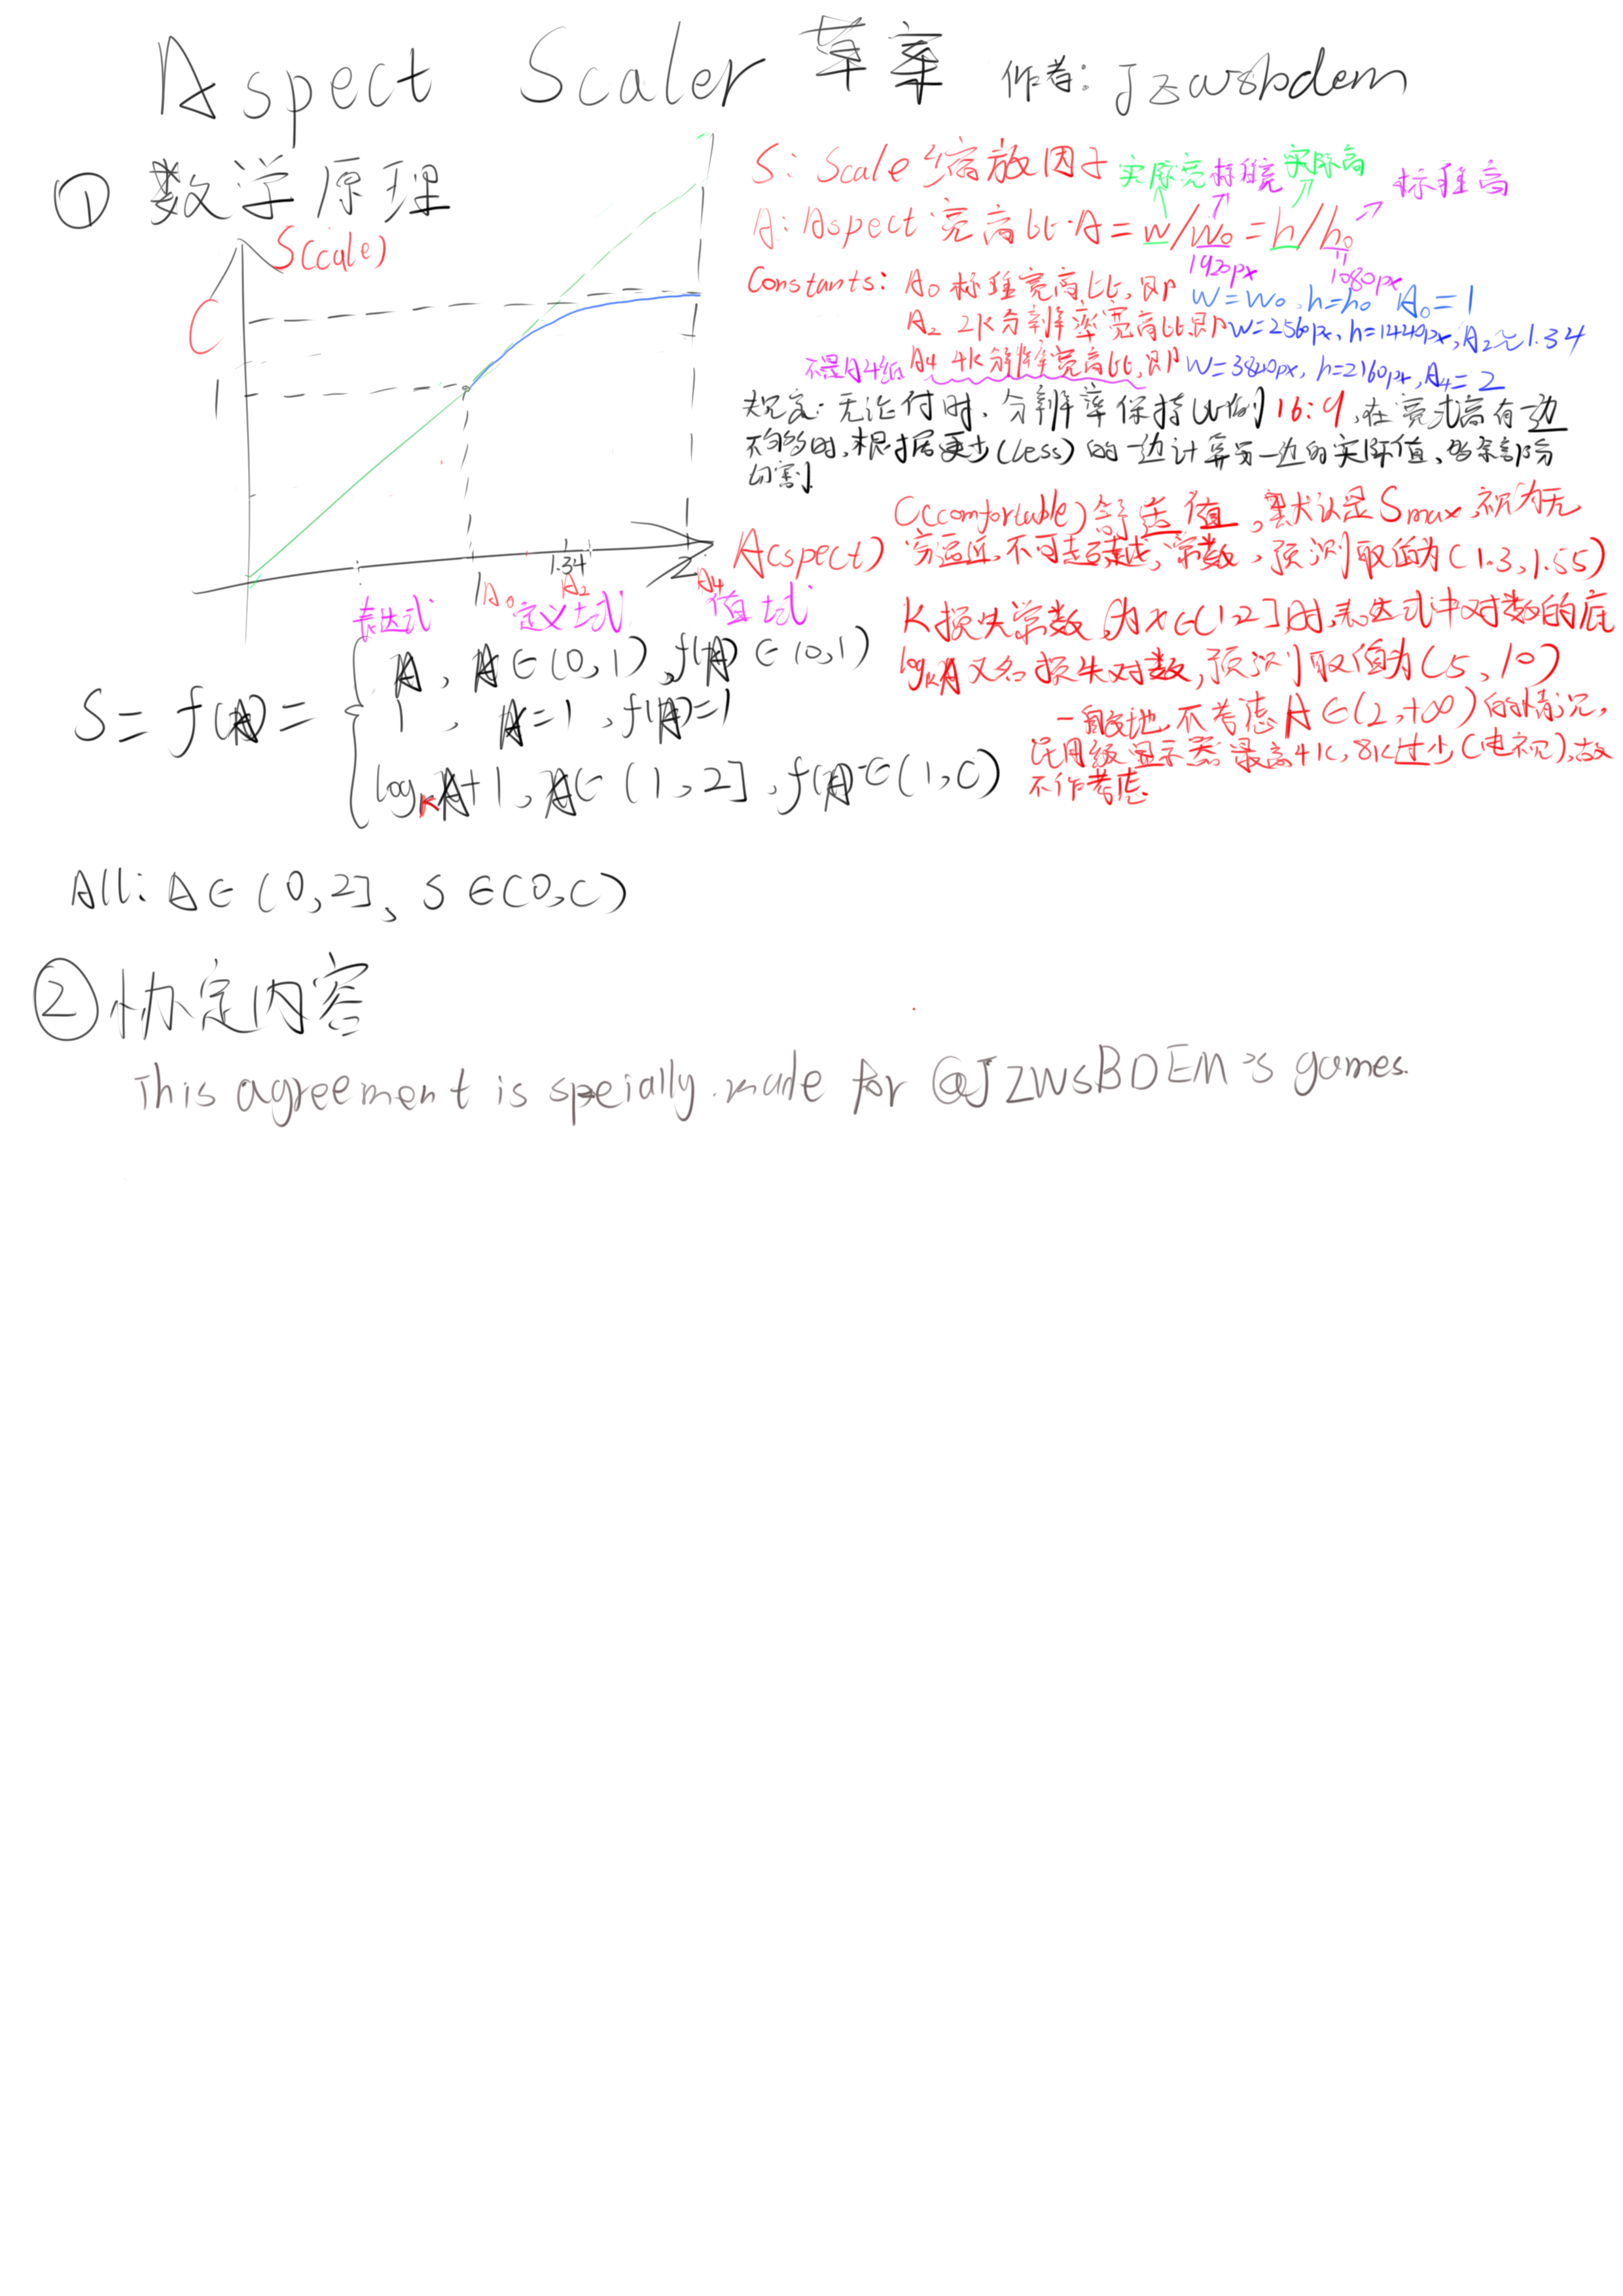 Aspect Scaler 草案 作者: Jzwsbdem
① 数学原理
S(cale)
C
1
A(spect)
1 1.34 2
A₀ A₂ A₄
S: Scale 缩放因子 实际宽 标准宽 实际高 标准高
A: Aspect 宽高比 A = w/w₀ = h/h₀
1920px 1080px
Constants: A₀ 标准宽高比, 即 w=w₀, h=h₀ A₀=1
A₂ 2K分辨率宽高比, 即 w=2560px, h=1440px, A₂≈1.34
不是A4纸 A4 4K分辨率宽高比, 即 w=3840px, h=2160px, A₄=2
规定: 无论何时, 分辨率保持比例 16:9, 在宽或高有一边
不够时, 根据更少(Less)的一边计算另一边的实际值, 多余部分
切割.
C(comfortable) 舒适值, 默认是Smax, 视为无
穷逼近, 不可超越, 常数, 预测取值为(1.3, 1.55)
K 损失常数, 为x∈(1,2]时, 表达式中对数的底
logₖA 又名损失对数, 预测取值为(5, 10)
一般地, 不考虑 A∈(2,+∞)的情况,
民用级显示器最高4K, 8K过少(电视), 故
不作考虑.
表达式 定义域 值域
A, A∈(0,1), f(A)∈(0,1)
S = f(A) = { 1, A=1, f(A)=1
logₖA+1, A∈(1,2], f(A)∈(1,C)
All: A∈(0,2], S∈(0,C)
② 协定内容
This agreement is speially made for @JZWSBDEM's games.